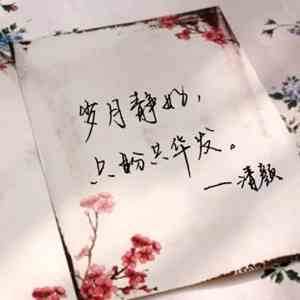 岁月静好，
只盼共华发。
——清颜